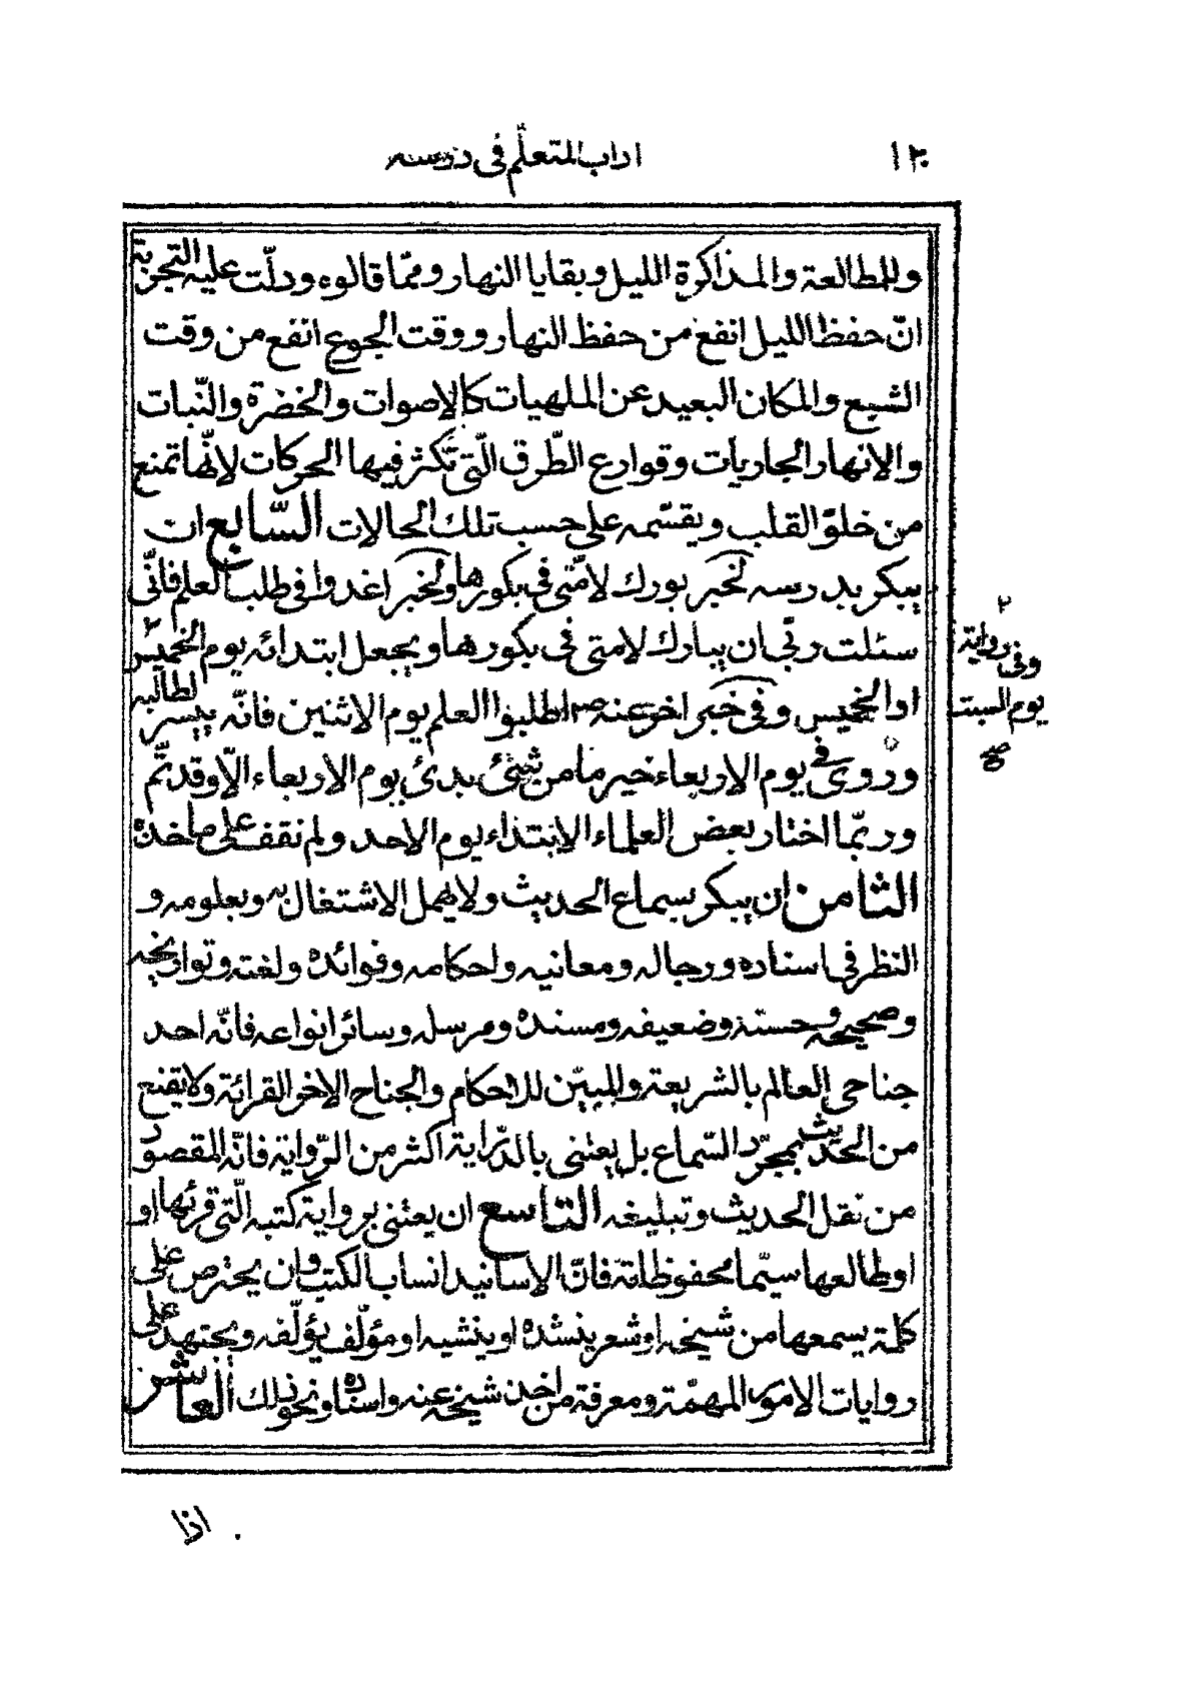 اداب المتعلّم فى درسه
وللمطالعة والمذاكرة الليل وبقايا النهار وممّا قالوه ودلّت عليه التجربة
انّ حفظ الليل انفع من حفظ النهار ووقت الجوع انفع من وقت
الشبع والمكان البعيد عن الملهيات كالاصوات والخضرة والنّبات
والانهار الجاريات وقوارع الطّرق الّتى تكثر فيها الحركات لانّها تمنع
من خلوّ القلب ويقسّمه على حسب تلك الحالات السّابع ان
يبكر بدرسه لخبر بورك لامّتى فى بكورها ولخبر اغدوا فى طلب العلم فانّى
سئلت ربّى ان يبارك لامتى فى بكورها ويجعل ابتدائه يوم الخميس ٢
او الخميس وفى خبر اخر عنه ص اطلبوا العلم يوم الاثنين فانّه ييسر لطالبه
وروى فى يوم الاربعاء خير ما من شئ بدئ يوم الاربعاء الّا وقد تمّ
وربّما اختار بعض العلماء الابتداء يوم الاحد ولم نقف على ماخذه
الثامن ان يبكر بسماع الحديث ولا يهمل الاشتغال به وبعلومه و
النظر فى اسناده ورجاله ومعانيه واحكامه وفوائده ولغته وتواريخه
وصحيحه وحسنه وضعيفه ومسنده ومرسله وسائر انواعه فانّه احد
جناحى العالم بالشريعة والمبيّن للاحكام والجناح الاخر القرائة ولا يقنع
من الحديث بمجرّد السّماع بل يعتنى بالدّراية اكثر من الرّواية فانّه المقصود
من نقل الحديث وتبليغه التاسع ان يعتنى برواية كتبه الّتى قرئها او
او طالعها سيّما محفوظاته فانّ الاسانيد انساب الكتب وان يحترص على
كلمة يسمعها من شيخه او شعر ينشده او ينشيه او مؤلّف يؤلّفه ويجتهد على
روايات الامور المهمّة ومعرفة من اخذ شيخه عنه واسناده ونحو ذلك العاشر
٢
وفى رواية
يوم السبت
صح
اذا